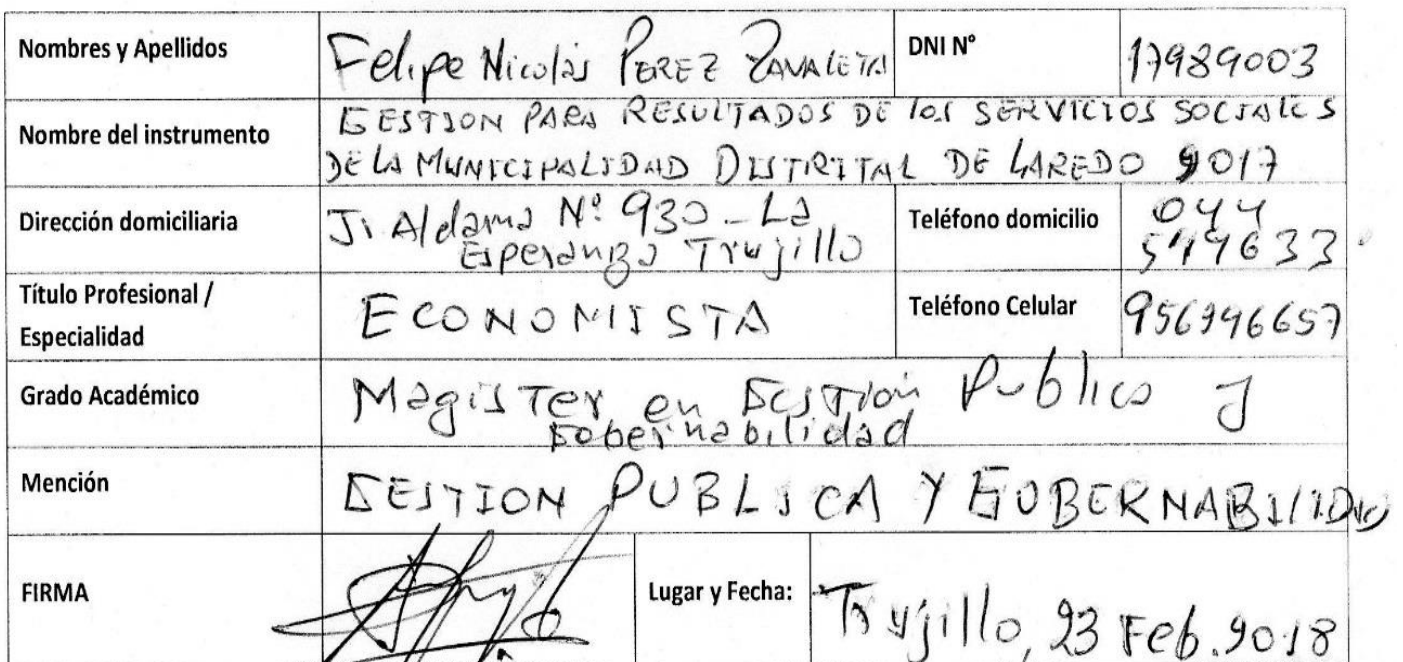 Nombres y Apellidos Felipe Nicolás PEREZ ZAVALETA DNI N° 17989003
Nombre del instrumento GESTION PARA RESULTADOS DE los SERVICIOS SOCIALES
DE LA MUNICIPALIDAD DISTRITAL DE LAREDO 2017
Dirección domiciliaria Jr Aldama Nº 930 - La Teléfono domicilio 044
Esperanza Trujillo 544633
Título Profesional / Especialidad ECONOMISTA Teléfono Celular 956946657
Grado Académico Magister en Gestión Publica y
Gobernabilidad
Mención GESTION PUBLICA Y GOBERNABILIDAD
FIRMA Lugar y Fecha: Trujillo, 23 Feb. 2018